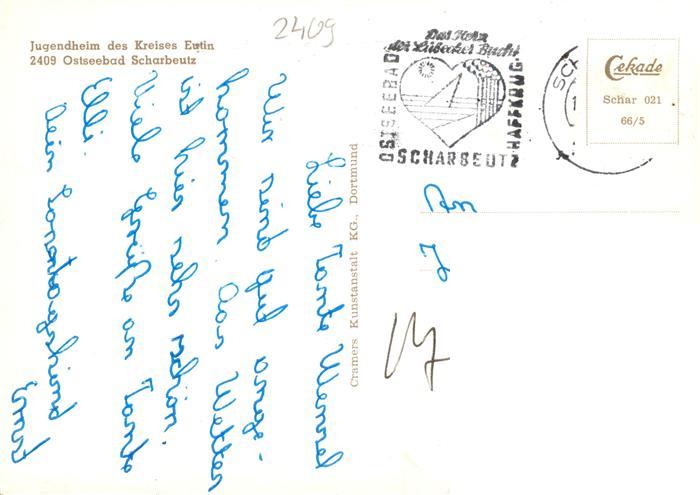 Jugendheim des Kreises Eutin
2409 Ostseebad Scharbeutz
2409
Das Herz
der Lübecker Bucht
OSTSEEBAD
HAFFKRUG
SCHARBEUTZ
SCH
Cekade
Schar 021
66/5
Cramers Kunstanstalt KG., Dortmund
Liebe Tante
Wir sind gut ange-
kommen. Das Wetter
ist hier sehr schön.
Viele Grüße an Tante
Elli.
Dein
An